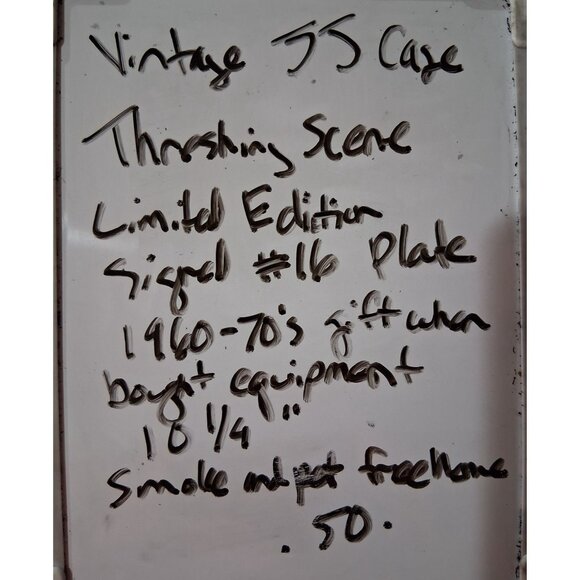 Vintage JJ Case
Threshing Scene
Limited Edition
Signed #16 Plate
1960-70's gift when
bought equipment
10 1/4 "
Smoke and pet free home
. 50.